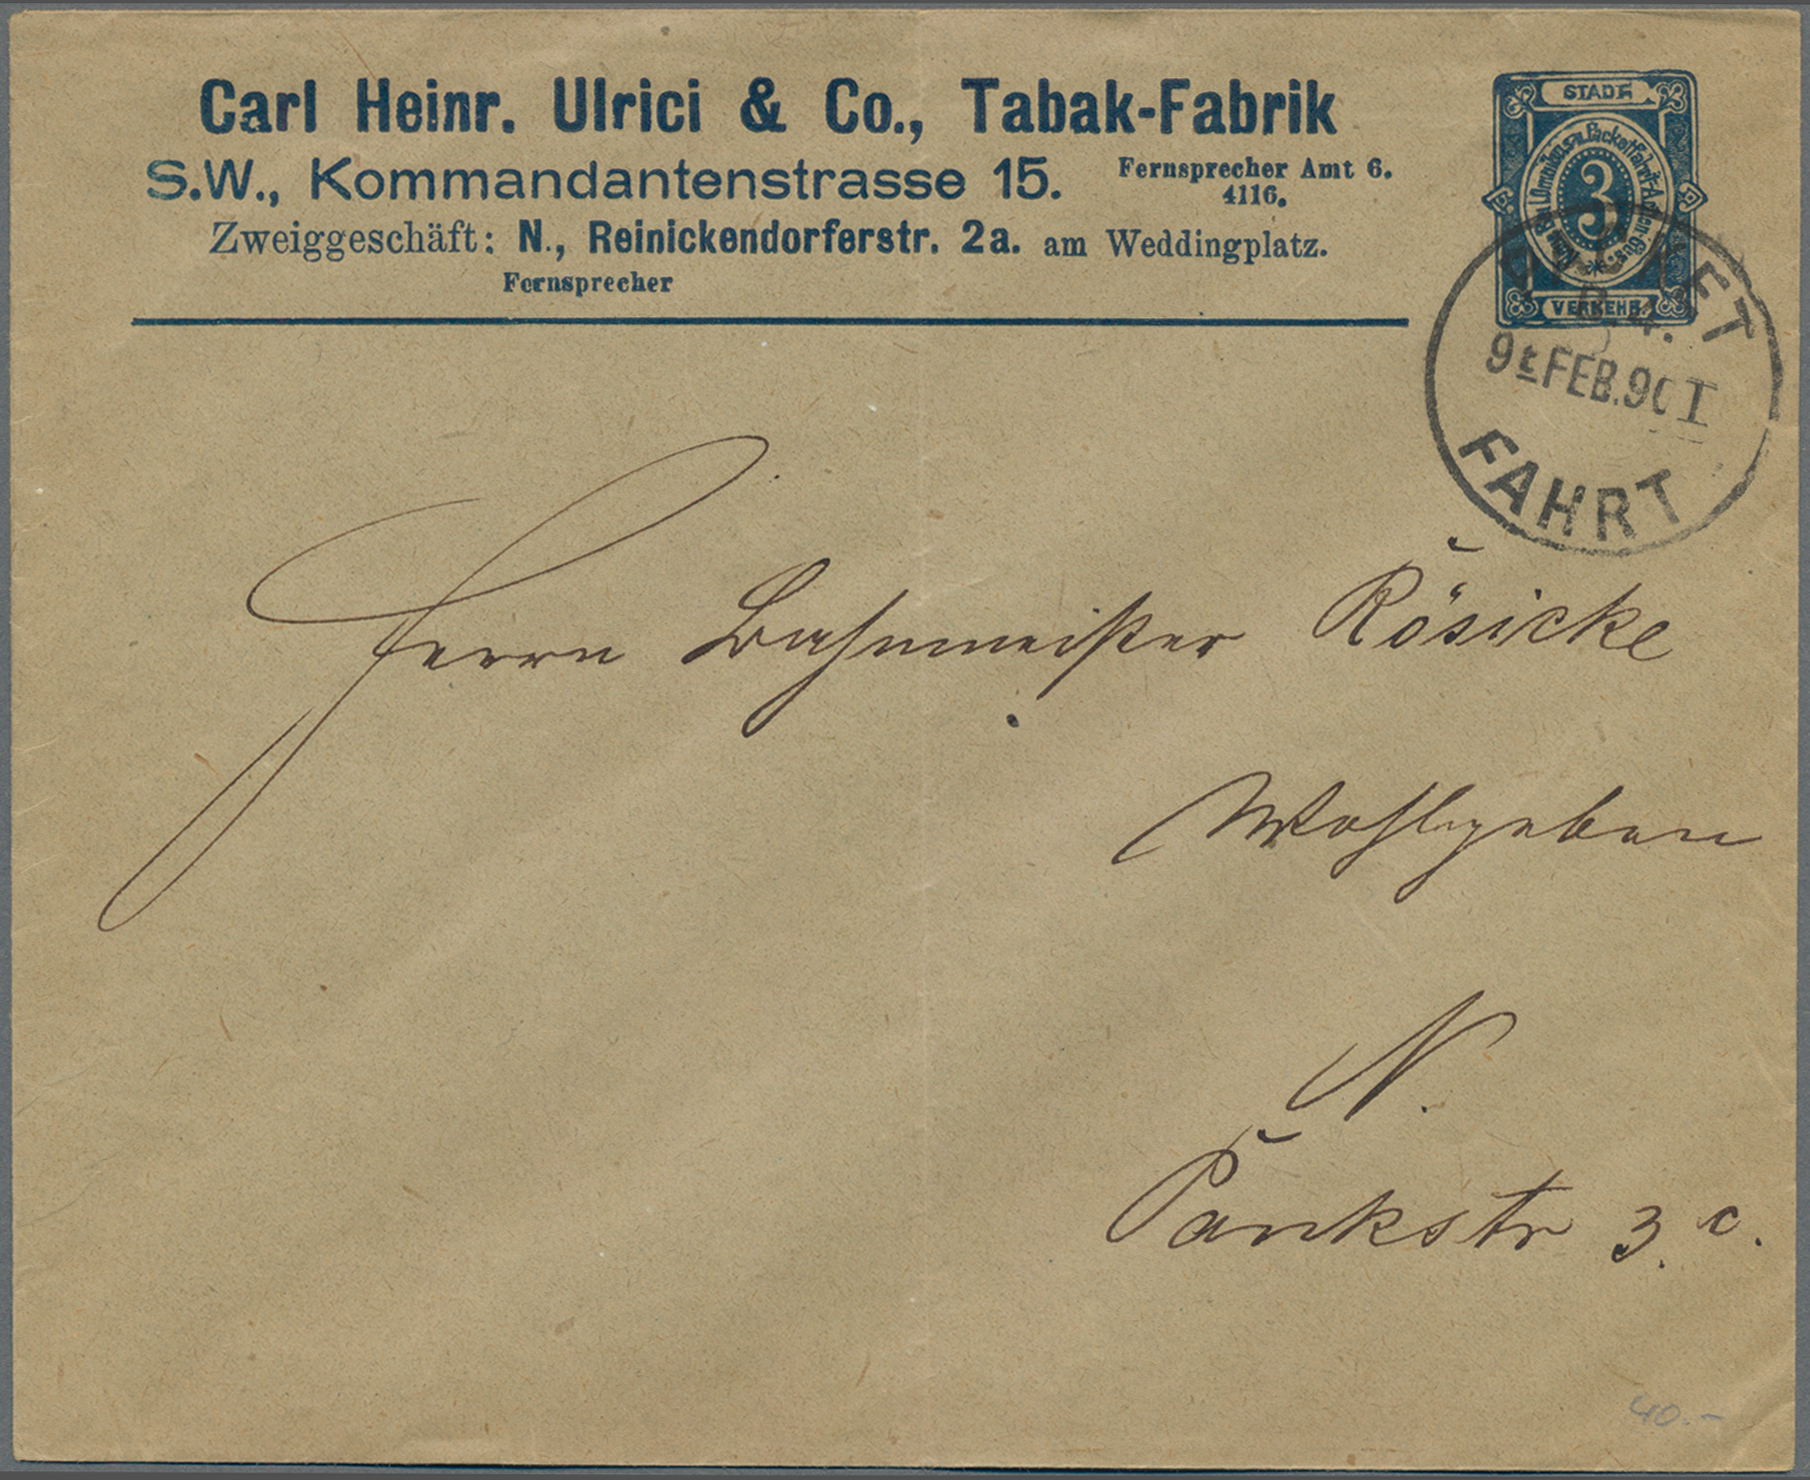 Carl Heinr. Ulrici & Co., Tabak-Fabrik
S.W., Kommandantenstrasse 15. Fernsprecher Amt 6. 4116.
Zweiggeschäft: N., Reinickendorferstr. 2a. am Weddingplatz.
Fernsprecher
STADT
Packetfahrt-Actien-Ges.
3
VERKEHR.
9t FEB.90 I
FAHRT
Herrn Bahnmeister Rösicke
Wohlgeboren
N.
Pankstr 3.c.
40.-